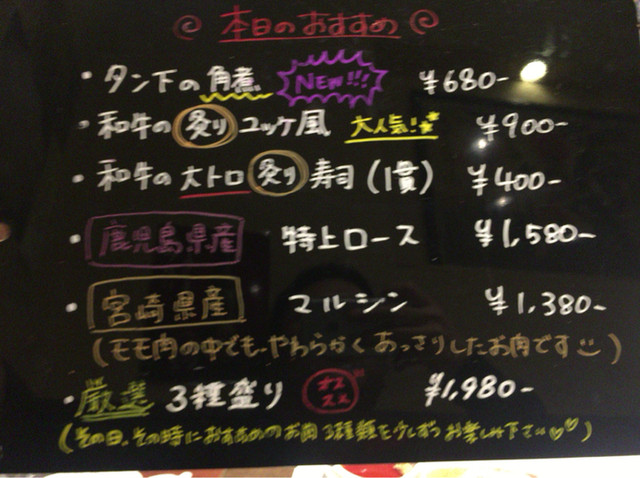 本日のおすすめ
・タン下の角煮 NEW!!! ¥680-
・和牛の炙りユッケ風 大人気! ¥900-
・和牛の大トロ炙り寿司(1貫) ¥400-
・鹿児島県産 特上ロース ¥1,580-
・宮崎県産 マルシン ¥1,380-
(モモ肉の中でも、やわらかくあっさりしたお肉です)
・厳選 3種盛り オススメ ¥1,980-
(その日、その時におすすめのお肉3種類を少しずつお楽しみ下さい♡♡)